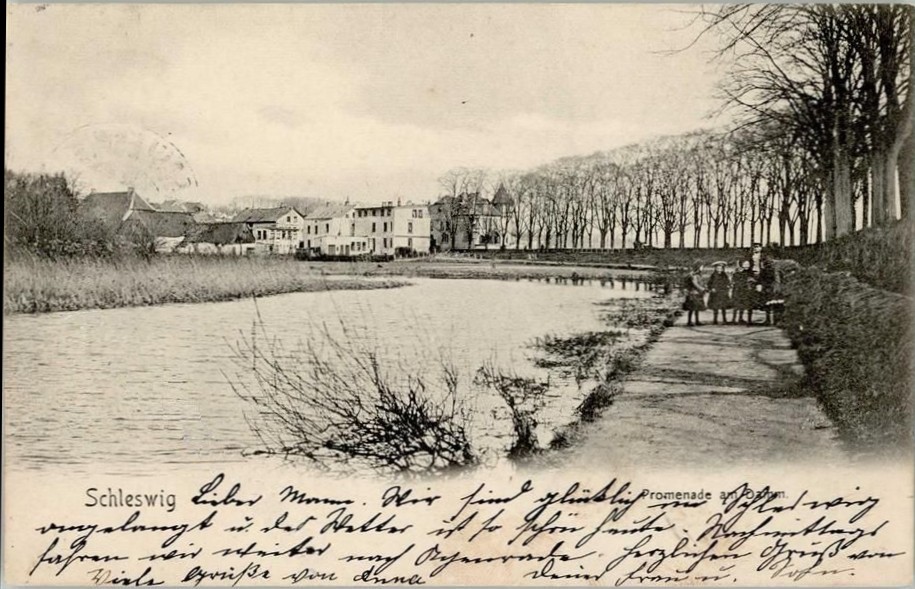 Schleswig
Promenade am Damm.
Lieber Mann. Wir sind glücklich in Schleswig
angelangt u. das Wetter ist so schön heute. Nachmittags
fahren wir weiter nach Herzlichen Gruß von
Viele Grüße von Anna Deiner Frau u. Sohn.